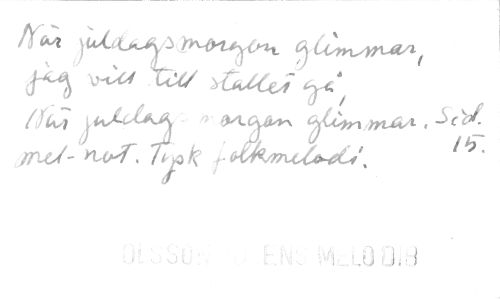 När juldagsmorgon glimmar,
jag vill till stallet gå,
När juldagsmorgon glimmar. Sid.
mel-not. Tysk folkmelodi. 15.
OLSSON ENS MELODIB